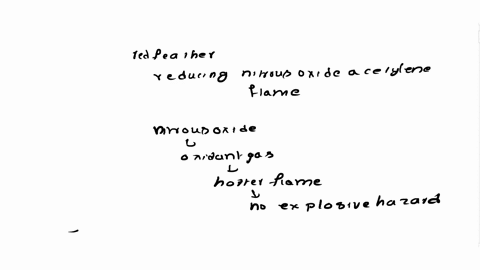 red feather
reducing nitrous oxide acetylene
flame
nitrous oxide
oxidant gas
hotter flame
no explosive hazard